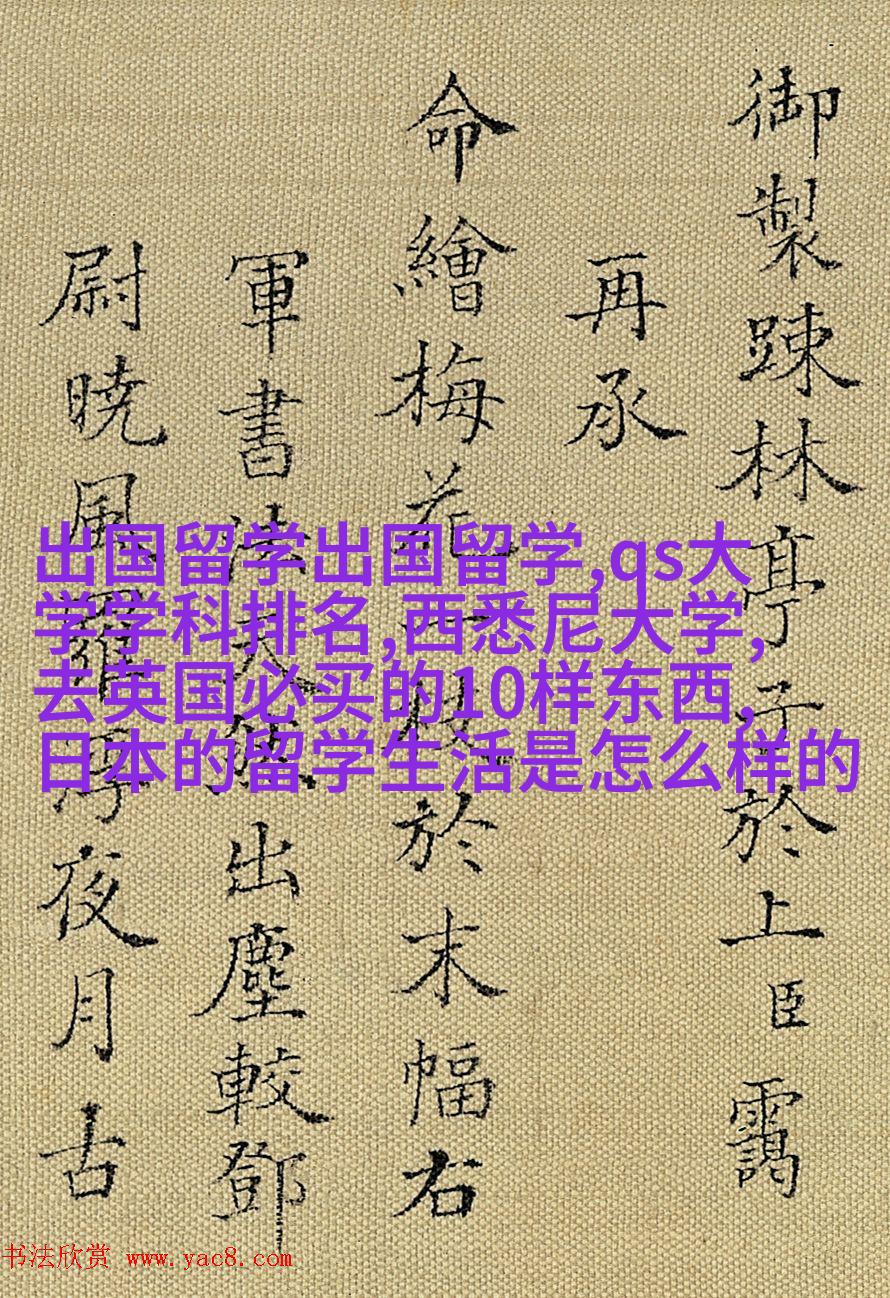 御製踈林亭子於上臣靄
再承
命繪梅花一枝於末幅右
軍書法出塵較鄧
尉暁風羅浮夜月古
出国留学出国留学,qs大
学学科排名,西悉尼大学,
去英国必买的10样东西,
日本的留学生活是怎么样的
书法欣赏 www.yac8.com